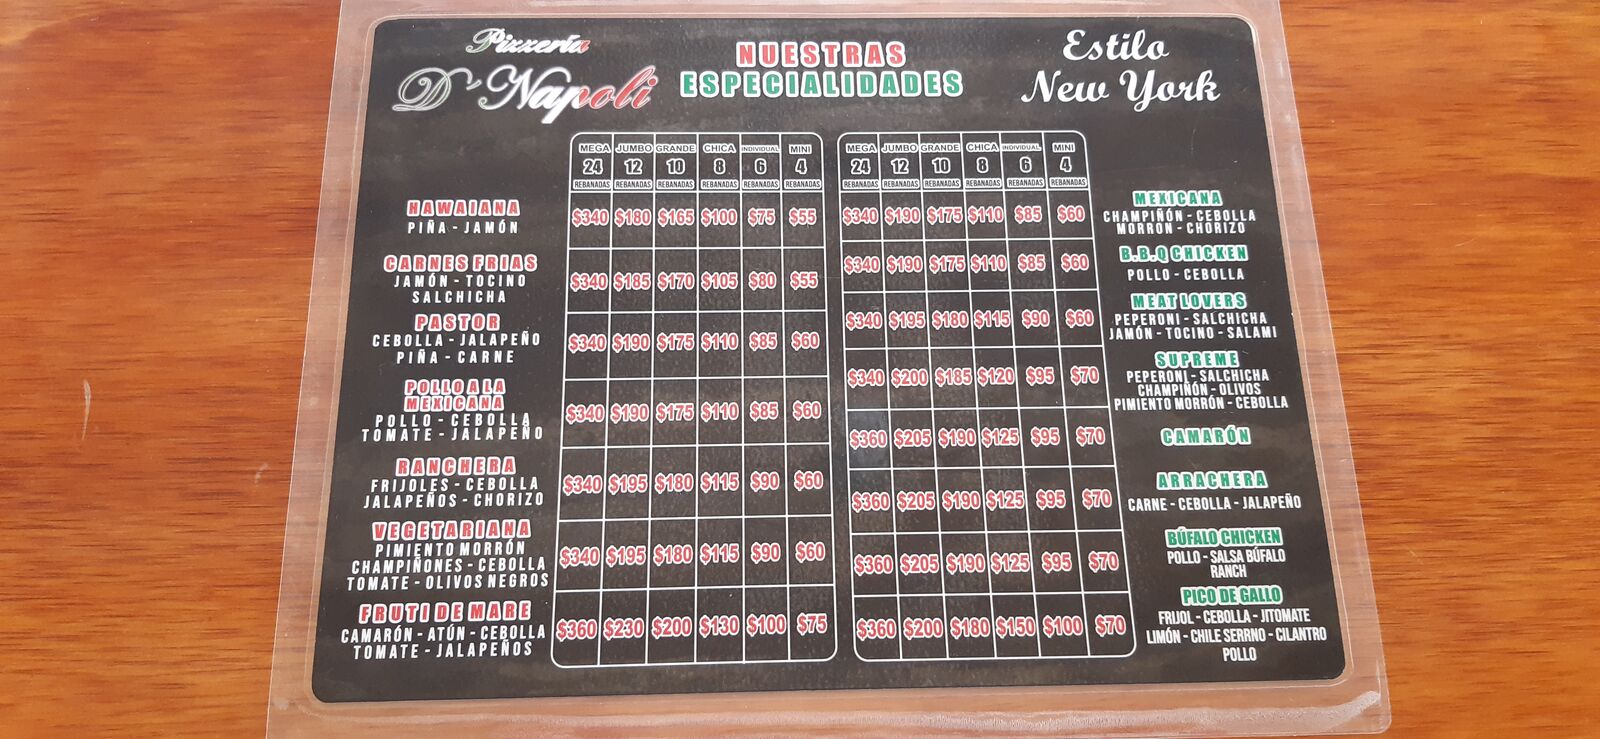 Pizzería
D' Napoli
NUESTRAS
ESPECIALIDADES
Estilo
New York
MEGA JUMBO GRANDE CHICA INDIVIDUAL MINI
24 12 10 8 6 4
REBANADAS REBANADAS REBANADAS REBANADAS REBANADAS REBANADAS
HAWAIANA
PIÑA - JAMÓN
$340 $180 $165 $100 $75 $55
CARNES FRIAS
JAMÓN - TOCINO
SALCHICHA
$340 $185 $170 $105 $80 $55
PASTOR
CEBOLLA - JALAPEÑO
PIÑA - CARNE
$340 $190 $175 $110 $85 $60
POLLO A LA
MEXICANA
POLLO - CEBOLLA
TOMATE - JALAPEÑO
$340 $190 $175 $110 $85 $60
RANCHERA
FRIJOLES - CEBOLLA
JALAPEÑOS - CHORIZO
$340 $195 $180 $115 $90 $60
VEGETARIANA
PIMIENTO MORRÓN
CHAMPIÑONES - CEBOLLA
TOMATE - OLIVOS NEGROS
$340 $195 $180 $115 $90 $60
FRUTI DE MARE
CAMARÓN - ATÚN - CEBOLLA
TOMATE - JALAPEÑOS
$360 $230 $200 $130 $100 $75
MEGA JUMBO GRANDE CHICA INDIVIDUAL MINI
24 12 10 8 6 4
REBANADAS REBANADAS REBANADAS REBANADAS REBANADAS REBANADAS
$340 $190 $175 $110 $85 $60
MEXICANA
CHAMPIÑÓN - CEBOLLA
MORRON - CHORIZO
$340 $190 $175 $110 $85 $60
B.B.Q CHICKEN
POLLO - CEBOLLA
$340 $195 $180 $115 $90 $60
MEAT LOVERS
PEPERONI - SALCHICHA
JAMÓN - TOCINO - SALAMI
$340 $200 $185 $120 $95 $70
SUPREME
PEPERONI - SALCHICHA
CHAMPIÑÓN - OLIVOS
PIMIENTO MORRÓN - CEBOLLA
$360 $205 $190 $125 $95 $70
CAMARÓN
$360 $205 $190 $125 $95 $70
ARRACHERA
CARNE - CEBOLLA - JALAPEÑO
$360 $205 $190 $125 $95 $70
BÚFALO CHICKEN
POLLO - SALSA BÚFALO
RANCH
$360 $200 $180 $150 $100 $70
PICO DE GALLO
FRIJOL - CEBOLLA - JITOMATE
LIMÓN - CHILE SERRNO - CILANTRO
POLLO